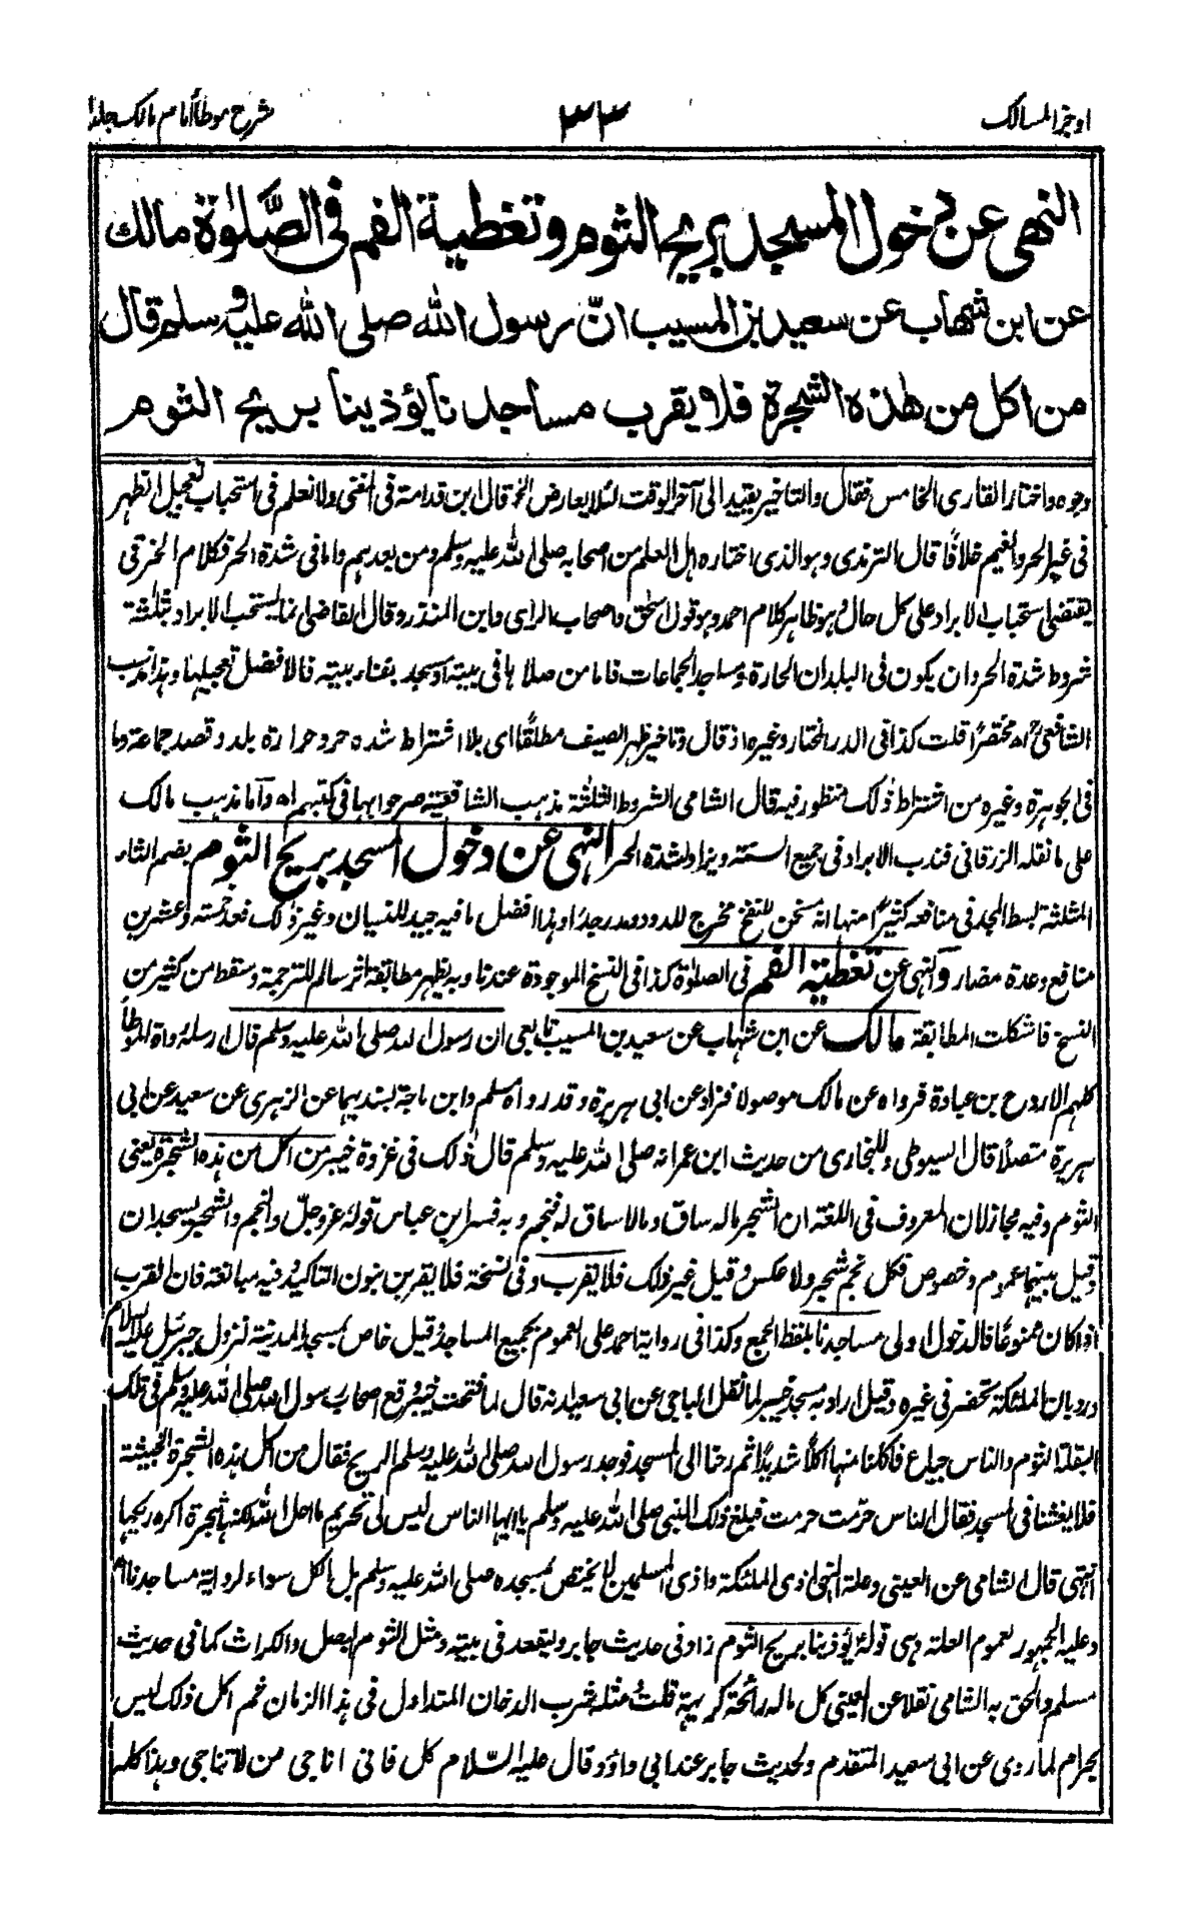 اوجز المسالك ٣٣ شرح موطأ امام مالك جلد١
النهى عن دخول المسجد بريح الثوم وتغطية الفم فى الصَّلٰوة مالك
عن ابن شهاب عن سعيد بن المسيب انّ رسول الله صلى الله عليه وسلم قال
من اكل من هٰذه الشجرة فلا يقرب مساجدنا يؤذينا بريح الثوم
وجوه واختار القارى الخامس فقال والتاخير يقيد الى آخر الوقت لئلا يعارض الخ قال ابن قدامة فى المغنى ولا نعلم فى استحباب تعجيل الظهر
فى غير الحر والغيم خلافًا قال الترمذى وهو الذى اختاره اهل العلم من اصحابه صلى الله عليه وسلم ومن بعدهم واما فى شدة الحر فكلام الخرقى
يقتضى استحباب الابراد على كل حال وهو ظاهر كلام احمد وهو قول اسحٰق واصحاب الراى وابن المنذر وقال القاضى انما يستحب الابراد بثلثة
شروط شدة الحر وان يكون فى البلدان الحارة ومساجد الجماعات فاما من صلاها فى بيته او مسجد بفناء بيته فالافضل تعجيلها وهذا مذهب
الشافعىؒ اه مختصرًا قلت كذا فى الدر المختار وغيره اذ قال وتاخير ظهر الصيف مطلقًا اى بلا اشتراط شدة حر وحرارة بلد وقصد جماعة وما
فى الجوهرة وغيره من اشتراط ذٰلك منظور فيه قال الشامى الشروط الثلثة مذهب الشافعية صرحوا بها فى كتبهم اه وآما مذهب مالك
على ما نقله الزرقانى فندب الابراد فى جميع السنة ويزاد لشدة الحر النهى عن دخول المسجد بريح الثوم بضم الثاء
المثلثة بسط المجد فى منافعه كثيرًا منها انه مسخن للنفخ مخرج للدود ومدر جدًا وهذا افضل ما فيه جيد للنسيان وغير ذٰلك فعد خمسة وعشرين
منافع وعدة مضار والنهى عن تغطية الفم فى الصلوة كذا فى النسخ الموجودة عندنا وبه يظهر مطابقة اثر سالم للترجمة وسقط من كثير من
النسخ فاشكلت المطابقة مالك عن ابن شهاب عن سعيد بن المسيب تابعى ان رسول الله صلى الله عليه وسلم قال ارسله رواة الموطأ
كلهم الا روح بن عبادة فرواه عن مالك موصولا فزاد عن ابى هريرة وقد رواه مسلم وابن ماجة بسنديهما عن الزهرى عن سعيد عن ابى
هريرة متصلًا قال السيوطى وللبخارى من حديث ابن عمر انه صلى الله عليه وسلم قال ذٰلك فى غزوة خيبر من اكل من هذه الشجرة يعنى
الثوم وفيه مجاز لان المعروف فى اللغة ان الشجر ماله ساق ومالا ساق له فنجم وبه فسر ابن عباس قوله عز وجلّ والنجم والشجر يسجدان
وقيل بينهما عموم وخصوص فكل نجم شجر ولا عكس وقيل غير ذٰلك فلا يقرب وفى نسخة فلا يقربن بنون التاكيد وفيه مبالغة فان القرب
اذا كان ممنوعًا فالدخول اولى مساجدنا بلفظ الجمع وكذا فى رواية احمد على العموم بجميع المساجد وقيل خاص بمسجد المدينة لنزول جبرئيل عليه السلام
ورد بان الملئكة تحضر فى غيره وقيل اراد به مسجد خيبر لما نقل الباجى عن ابى سعيد انه قال لما فتحت خيبر وقع اصحاب رسول الله صلى الله عليه وسلم فى تلك
البقلة الثوم والناس جياع فاكلنا منها اكلًا شديدًا ثم رحنا الى المسجد فوجد رسول الله صلى الله عليه وسلم الريح فقال من اكل هذه الشجرة الخبيثة
فلا يغشنا فى المسجد فقال الناس حرّمت حرمت فبلغ ذٰلك النبى صلى الله عليه وسلم يا ايها الناس ليس لى تحريم ما احل الله ولكنها شجرة اكره ريحها
انتهى قال الشامى عن العينى وعلة النهى اذى الملئكة واذى المسلمين لا يختص بمسجده صلى الله عليه وسلم بل الكل سواء لرواية مساجدنا اه
وعليه الجمهور لعموم العلة وهى قوله يؤذينا بريح الثوم زاد فى حديث جابر وليقعد فى بيته ومثل الثوم البصل والكراث كما فى حديث
مسلم والحق به الشامى نقلا عن العينى كل ماله رائحة كريهة قلتُ مثله شرب الدخان المتداول فى هذا الزمان ثم اكل ذٰلك ليس
بحرام لما روى عن ابى سعيد المتقدم ولحديث جابر عند ابى داؤد وقال عليه السّلام كل فانى اناجى من لا تناجى وهذا كله